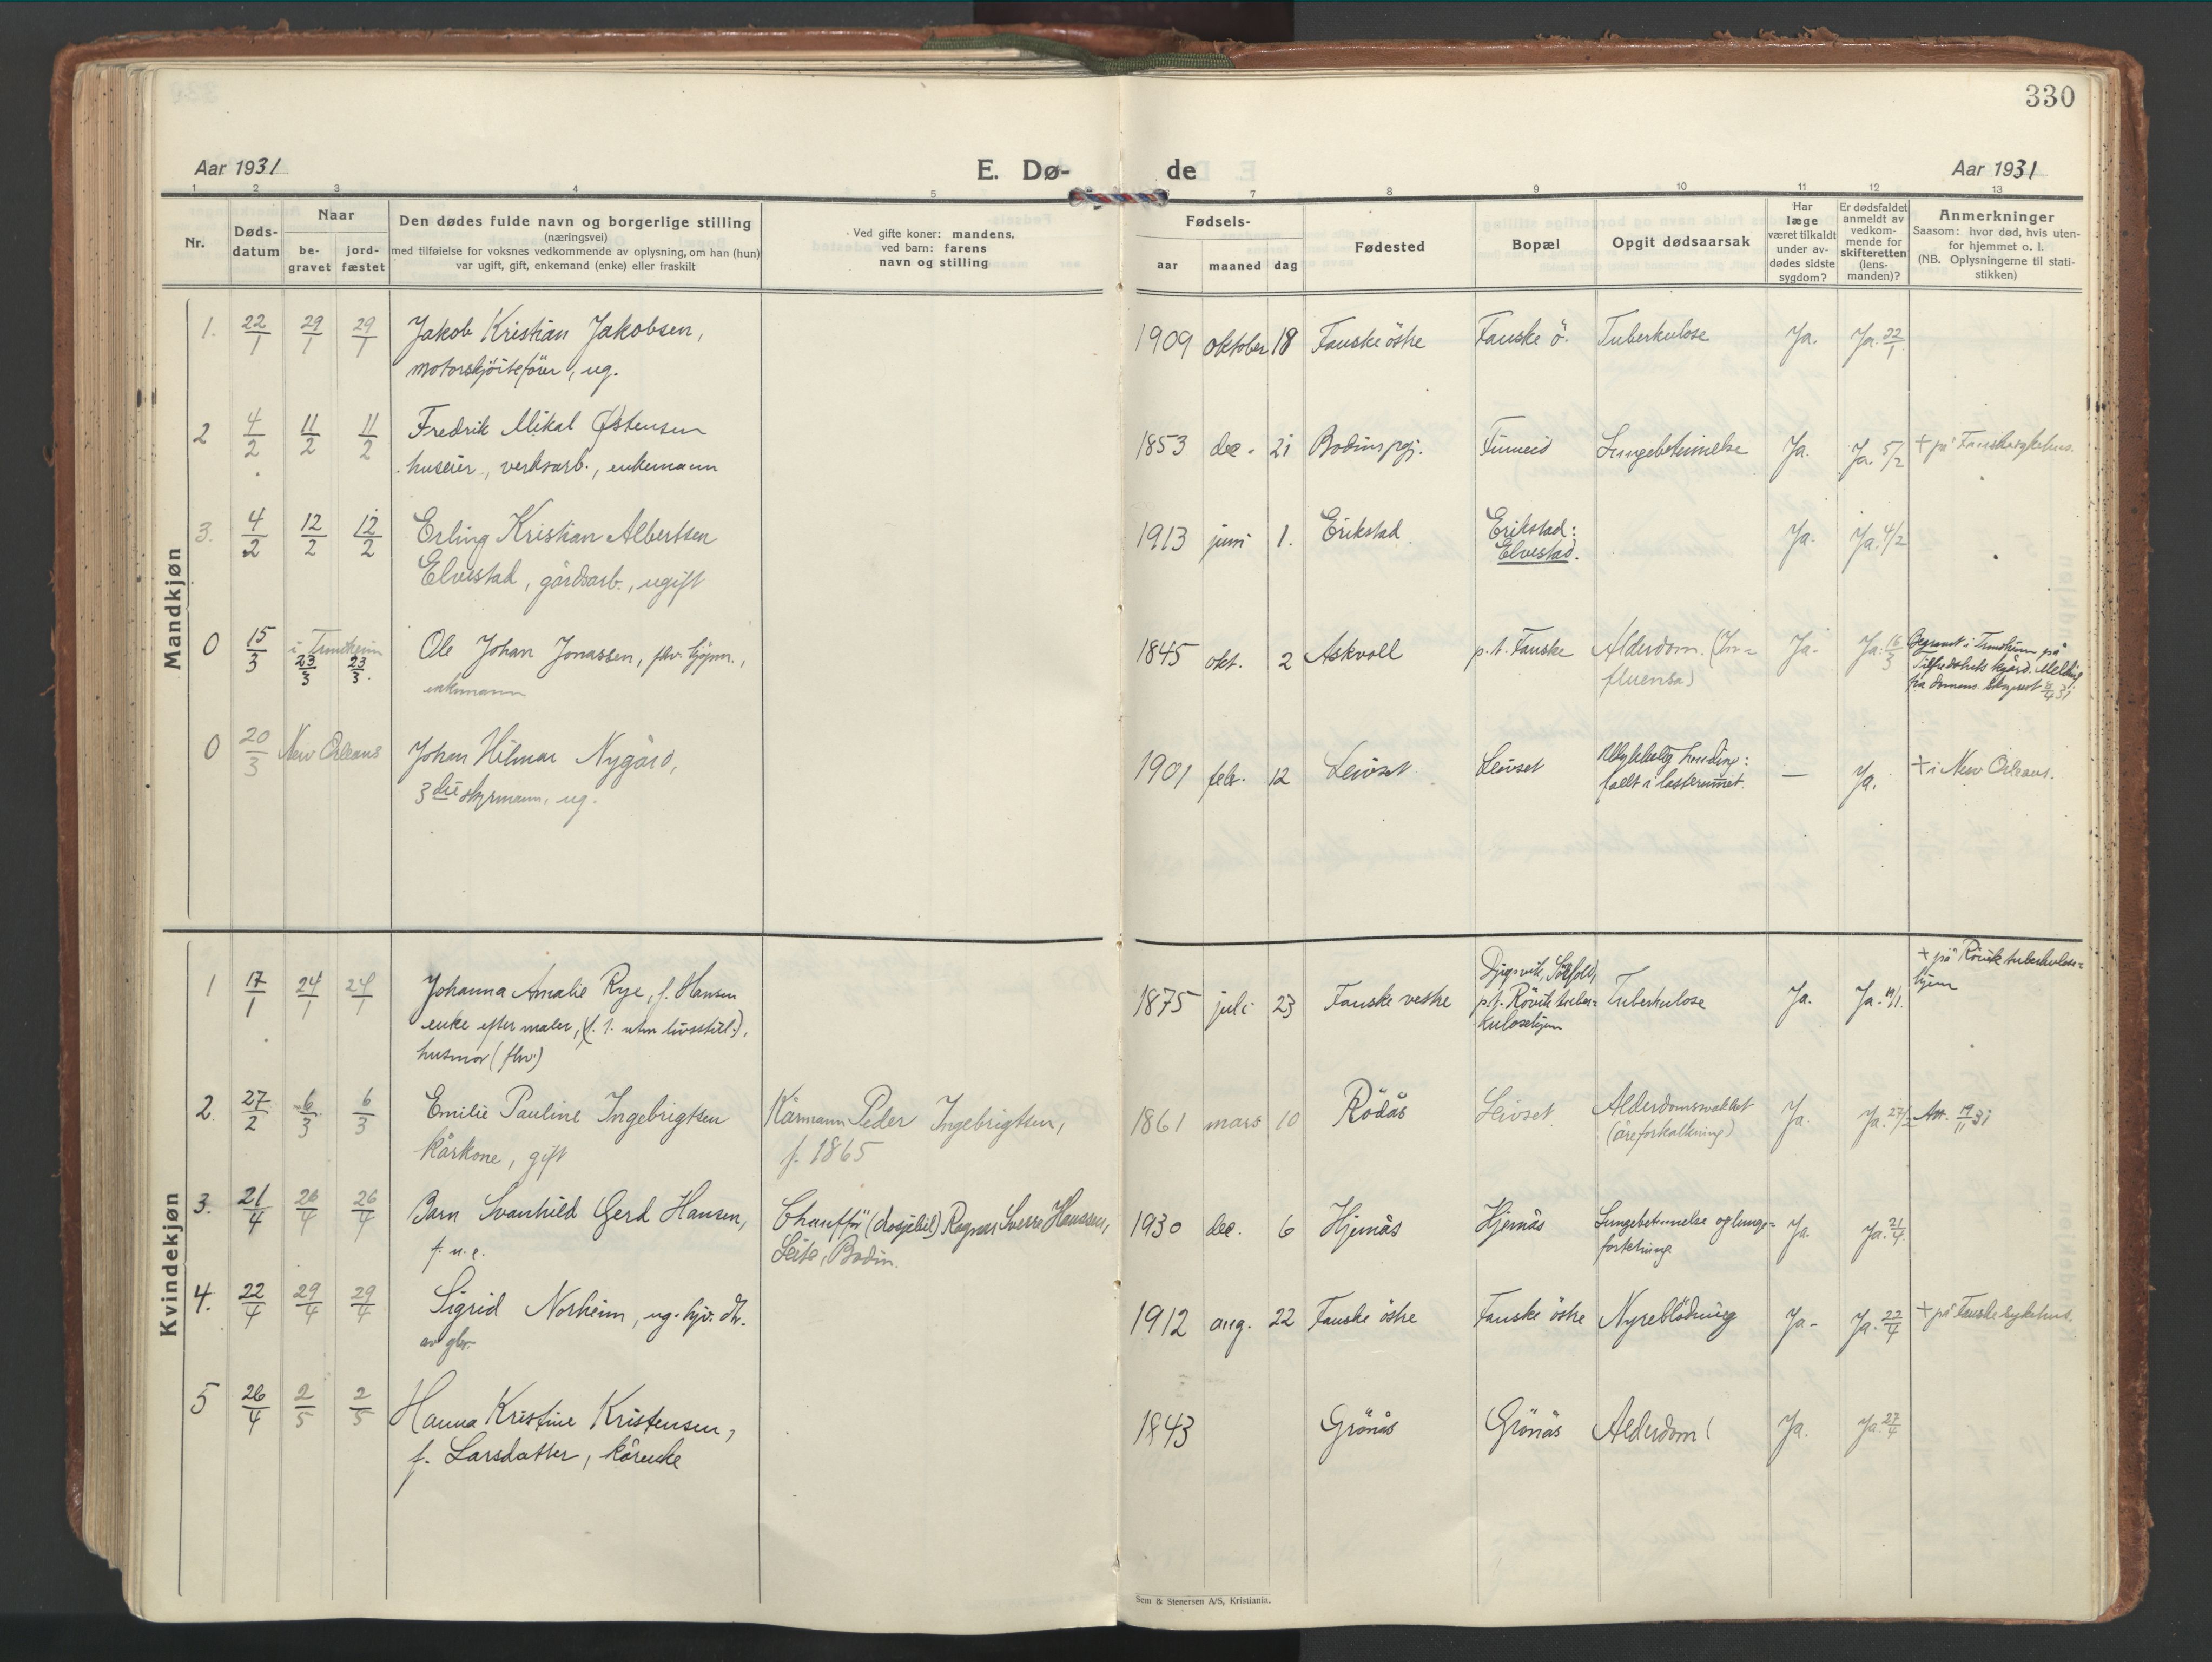 330
Aar 1931
E. Dø-
de
Aar 1931
1 2 3 4 5
7 8 9 10 11 12 13
Nr.
Døds-
datum
Naar
be-
gravet
jord-
fæstet
Den dødes fulde navn og borgerlige stilling
(næringsvei)
med tilføielse for voksnes vedkommende av oplysning, om han (hun)
var ugift, gift, enkemand (enke) eller fraskilt
Ved gifte koner: mandens,
ved barn: farens
navn og stilling
Fødsels-
aar maaned dag
Fødested
Bopæl
Opgit dødsaarsak
Har
læge
været tilkaldt
under av-
dødes sidste
sygdom?
Er dødsfaldet
anmeldt av
vedkom-
mende for
skifteretten
(lens-
manden)?
Anmerkninger
Saasom: hvor død, hvis uten-
for hjemmet o. l.
(NB. Oplysningerne til stati-
stikken)
Mandkjøn
1. 22/1 29/1 29/1 Jakob Kristian Jakobsen, 1909 oktober 18 Fauske östre Fauske ö. Tuberkulose Ja. Ja. 22/1
motorskjöitefører, ug.
2 4/2 11/2 11/2 Fredrik Mikal Østensen 1853 dec. 21 Bodin prgj. Finneid Lungebetennelse Ja. Ja. 5/2 + på Fauske sykehus.
huseier, verksarb., enkemann
3. 4/2 12/2 12/2 Erling Kristian Albertsen 1913 juni 1. Erikstad Erikstad: Ja. Ja. 4/2
Elvestad, gårdsarb., ugift Elvestad.
0 15/3 i Trondheim 23/3 23/3. Ole Johan Jonassen, fhv. 1845 okt. 2 Askvoll p.t. Fauske Alderdom. (In- Ja. Ja. 16/3 Begravet i Trondheim på
enkemann fluensa) Tilfredshets kgård. Melding
fra domens 4/4 31
0 20/3 New Orleans Johan Hilmar Nygård, 1901 febr. 12 Leivset Leivset Ulykkelig hending: — Ja. + i New Orleans.
3die styrmann, ug. falt i lasterummet.
Kvindekjøn
1 17/1 24/1 24/1 Johanna Amalie Rye, f. Hansen 1875 juli 23 Fauske vestre Djupvik, Sörfold, Tuberkulose Ja. Ja. 19/1. + på Rövik tuberkulose-
enke efter maler, (f. f. uten livsstill.), p.t. Rövik tuber- hjem
husmor (fhv.) kulosehjem
2. 27/2 6/3 6/3 Emilie Pauline Ingebrigtsen Kårmann Peder Ingebrigtsen, 1861 mars 10 Rödås Leivset Alderdomssvakhet Ja. Ja. 27/2 Att. 19/11 31
kårkone, gift f. 1865 (åreforkalkning)
3. 21/4 26/4 26/4 Barn Svanhild Gerd Hansen, Chaufför (drosjebil) Ragnar Sverre Hansen, 1930 dec. 6 Hjemås Hjemås Lungebetennelse og lunge- Ja. Ja. 21/4.
f. u. e. Seite, Bodin. fortetning
4. 22/4 29/4 29/4 Sigrid Norheim, ug. hjv. dtr. 1912 aug. 22 Fauske östre Fauske östre Nyreblödning Ja. Ja. 22/4 + på Fauske sykehus.
av gbr.
5 26/4 2/5 2/5 Hanna Kristine Kristensen, 1843 Grönås Grönås Alderdom Ja. Ja. 27/4
f. Larsdatter, kårenke
Sem & Stenersen A/S, Kristiania.